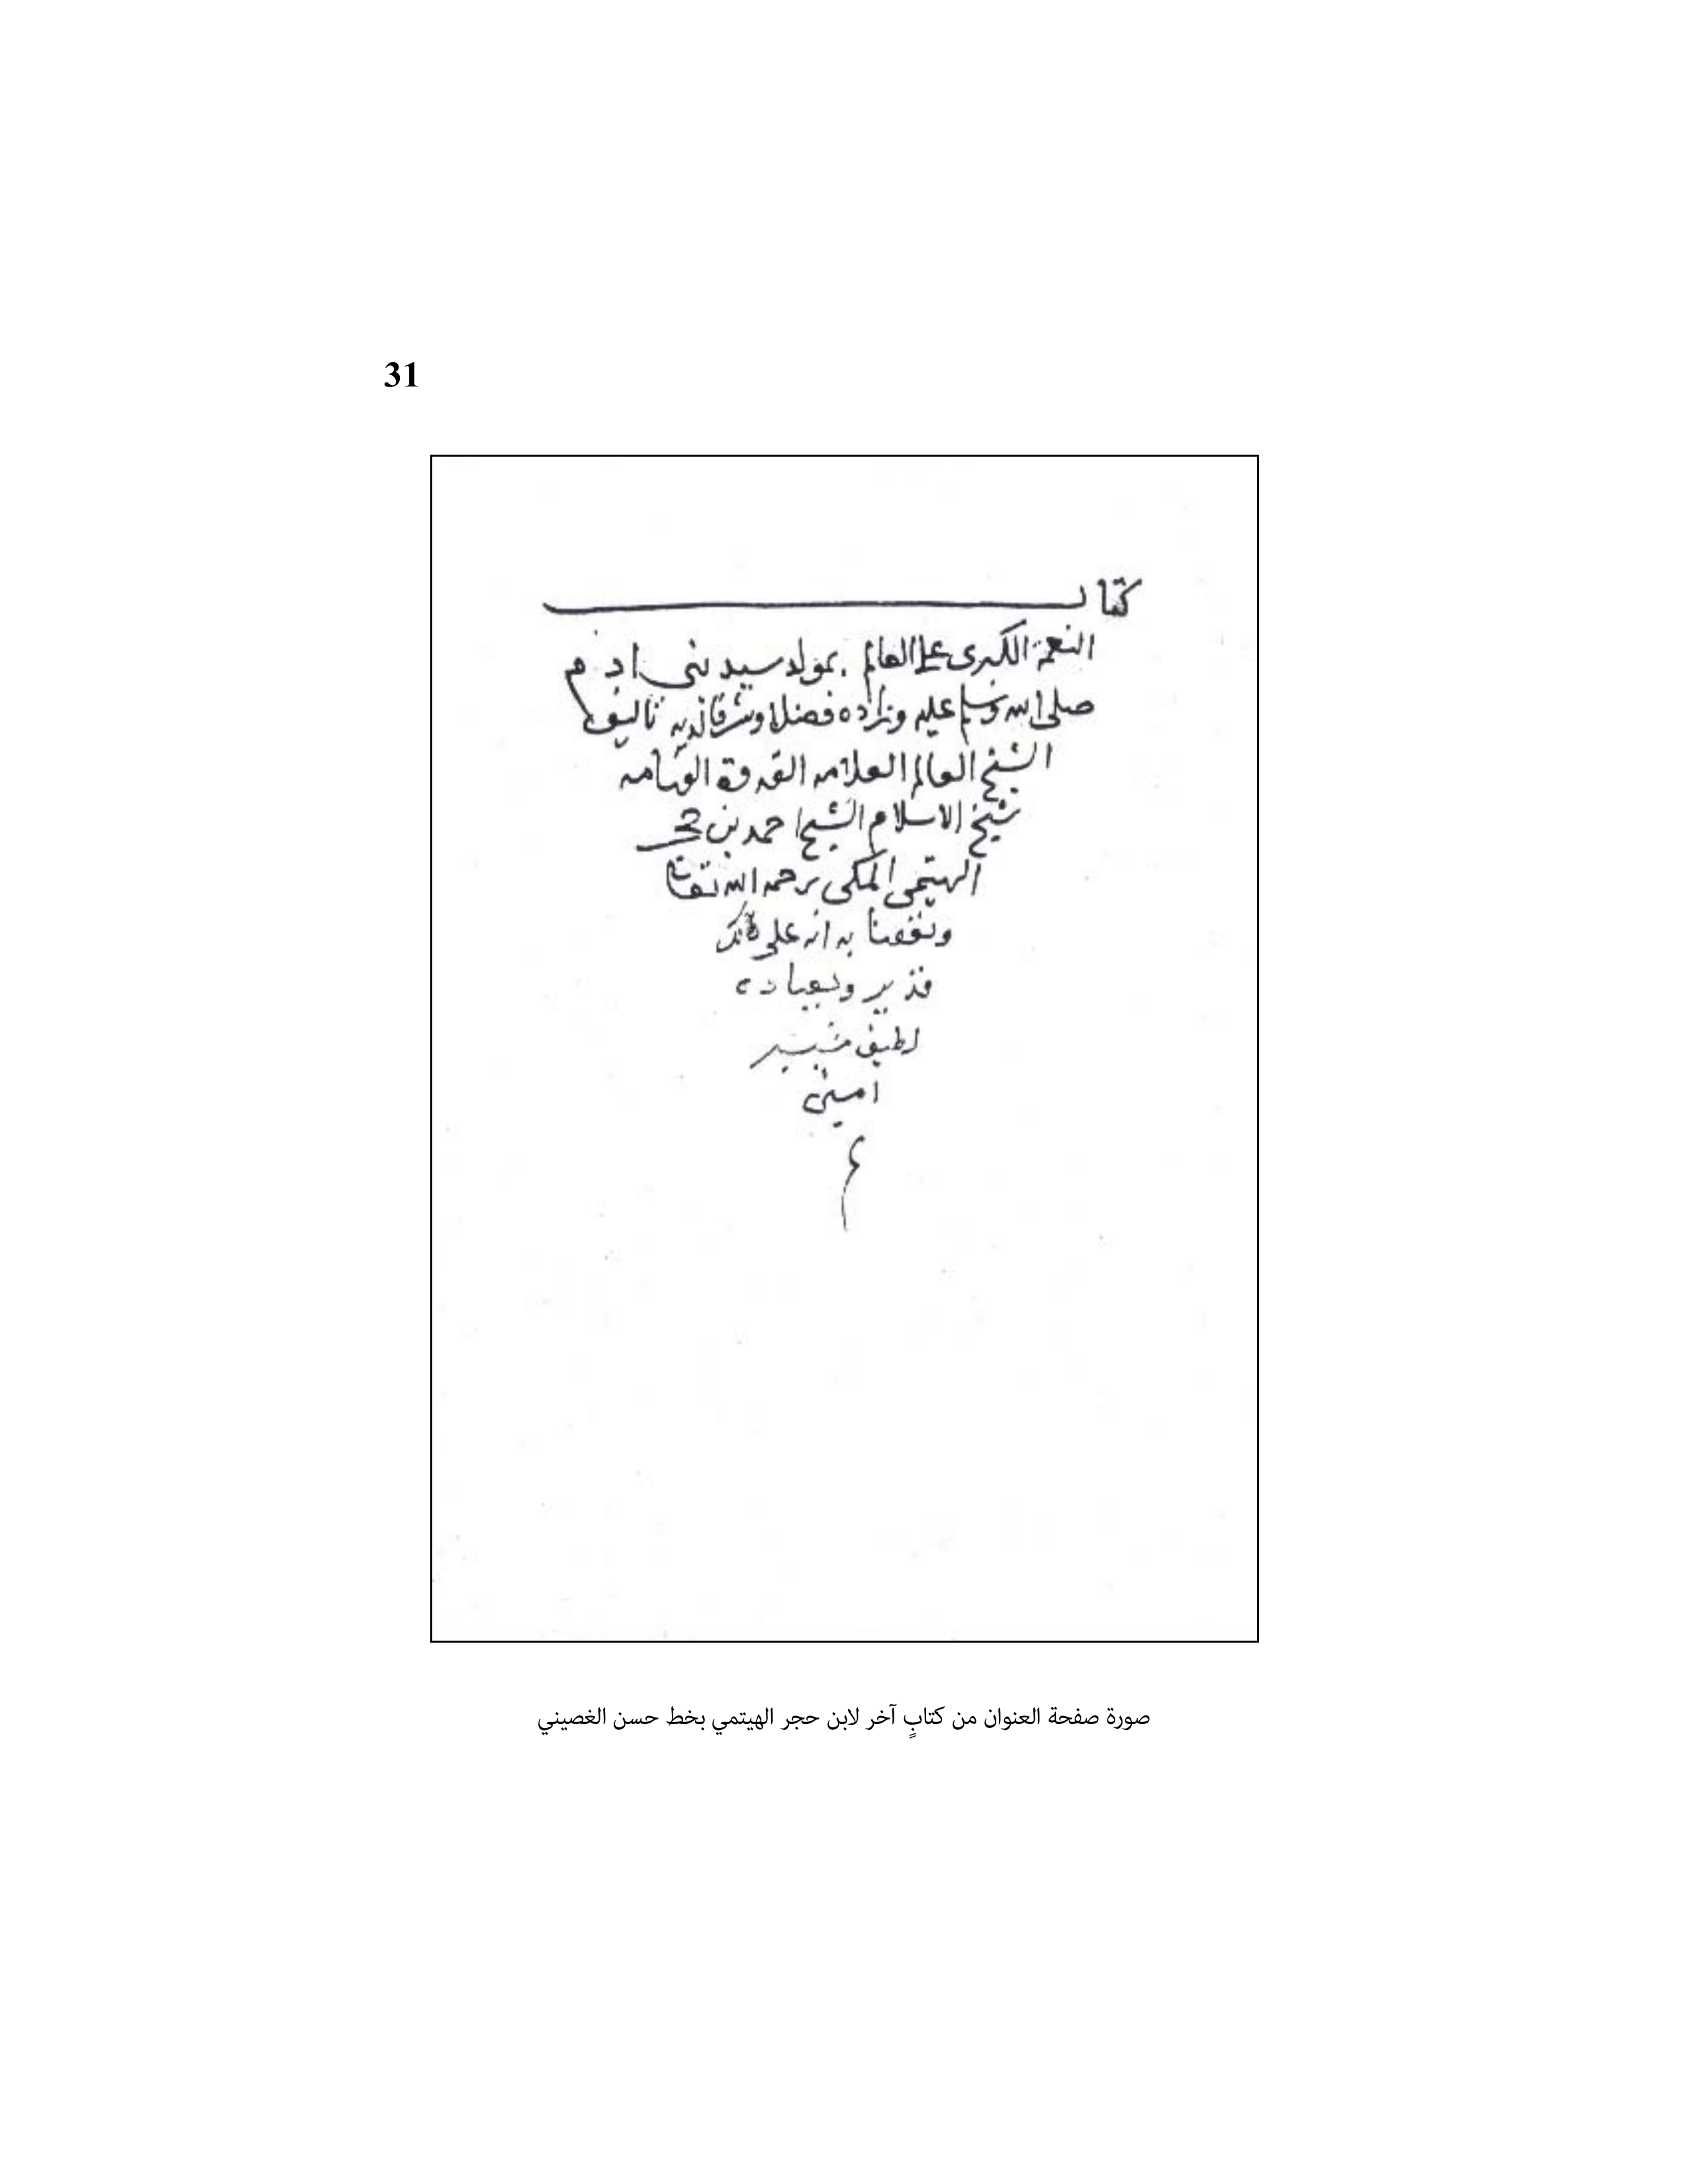 31
كتاب
النعمة الكبرى على العالم بمولد سيد بني ادم
صلى الله وسلم عليه وزاده فضلا وشرفا لديه تاليف
الشيخ العالم العلامه القدوة الفهامه
شيخ الاسلام الشيخ احمد بن حجر
الهيتمي المكي رحمه الله تعالى
ونفعنا به انه على ذلك
قدير وبعباده
لطيف خبير
امين
م
صورة صفحة العنوان من كتابٍ آخر لابن حجر الهيتمي بخط حسن الغصيني